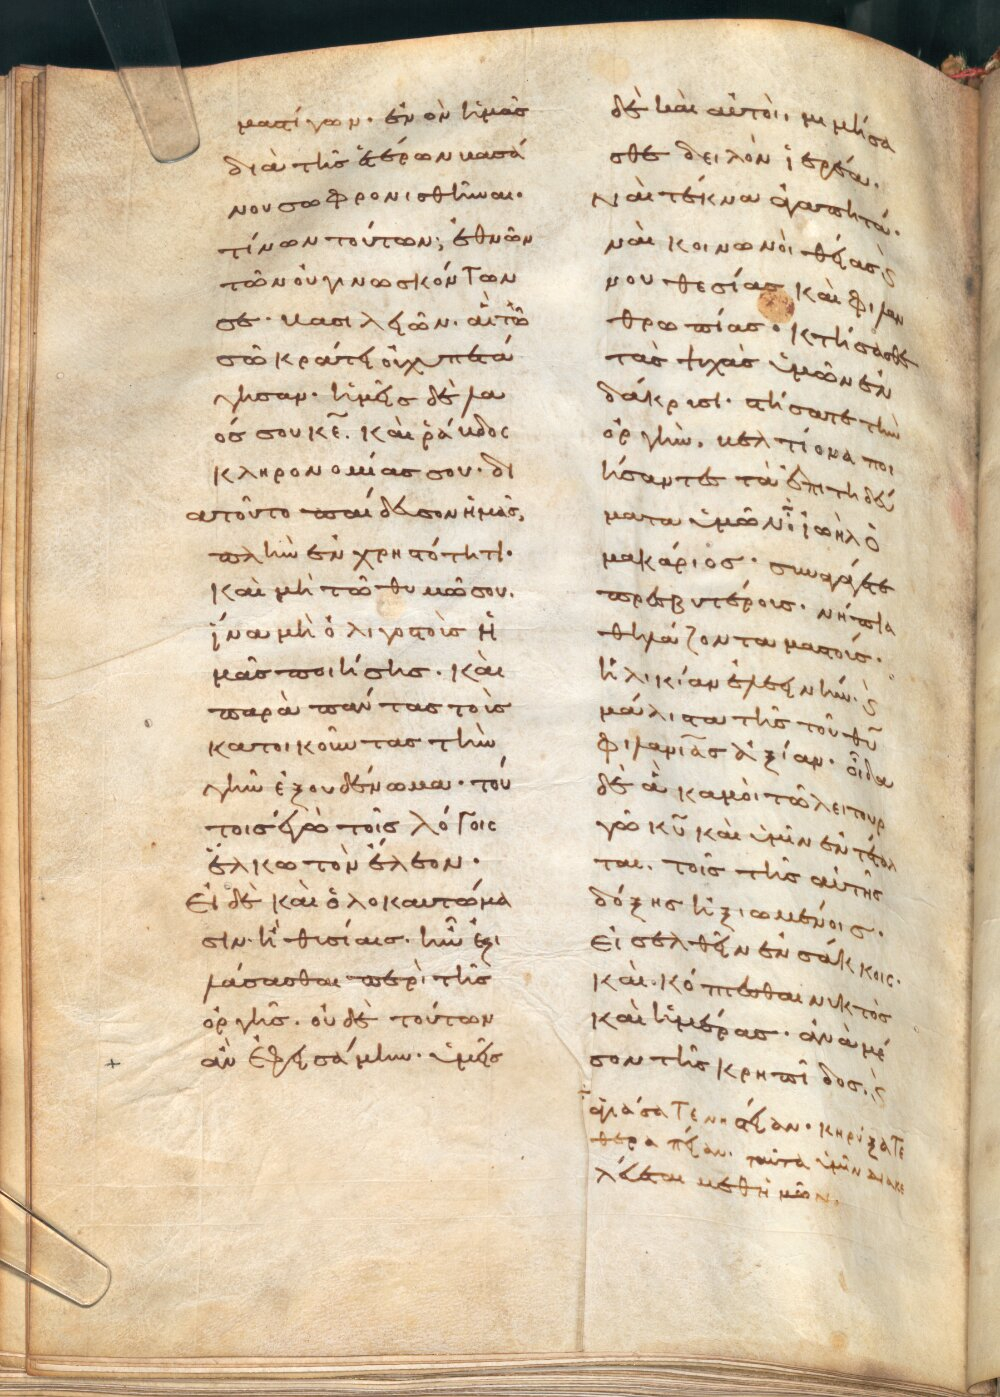 μαστίγων· ἐν ὂν ἡμᾶς
διὰ τῆς ἑτέρων βασά
νου σωφρονισθῆναι·
τίνων τούτων; ἐθνῶν
τῶν οὐ γινωσκόντων
σε· βασιλειῶν· αἳ τῶ
σῶ κράτει οὐχ ὑπετά
γησαν· ἡμεῖς δὲ λα
ός σου κε̄. καὶ ῥάβδος
κληρονομίας σου· δι
ατοῦτο παίδευσον ἡμᾶς,
πλὴν ἐν χρηστότητι·
καὶ μὴ τῶ θυμῶ σου.
ἵνα μὴ ὀλιγοστοὺς ἡ
μᾶς ποιήσης· καὶ
παρὰ πάντας τοὺς
κατοικοῦντας τὴν
γῆν ἐξουδένωμα· τού
τοις ἐγὼ τοῖς λόγοις
ἕλκω τὸν ἔλεον·
Εἰ δὲ καὶ ὁλοκαυτώμα
σιν· ἢ θυσίαις· ἦν ἐξι
λάσασθαι περὶ τῆς
ὀργῆς. οὐδὲ τούτων
ἂν ἐφεισάμην· ὑμεῖς
δὲ καὶ αὐτοὶ. μιμήσα
σθε δειλὸν ἱερέα·
ναὶ τέκνα ἀγαπητά·
ναὶ κοινωνοὶ θείας ϛ
νουθεσίας καὶ φιλαν
θρωπίας· κτήσασθε
τὰς ψυχὰς ὑμῶν ἐν
δάκρυσι· στήσατε τὴν
ὀργὴν. βελτίονα ποι
ήσαντες τὰ ἐπιτηδεύ
ματα ὑμῶν ἰωὴλ ὁ
μακάριος· συναγάγετε
πρεσβυτέρους· νήπια
θηλάζοντα μαστούς·
ἡλικίαν ἐλεεινήν· ϛ
μάλιστα τῆς τοῦ θῡ
φιλανίας ἀξίαν· οἶδα
δὲ ἃ καμοὶ τῶ λειτουρ
γῶ κῡ καὶ ὑμῖν ἐντέταλ
ται. τοῖς τῆς αὐτῆς
δόξης ἠξιωμένοις·
εἰσελθεῖν ἐν σάκκοις·
καὶ κόπτεσθαι νυκτὸς
καὶ ἡμέρας· ἀνὰ μέ
σον τῆς κρηπῖδος· ϛ
ἁγιάσατε νηστείαν· κηρύξατε
θεραπείαν· ταῦτα ὑμῖν διακε
λεύεται μεθ ἡμῶν.